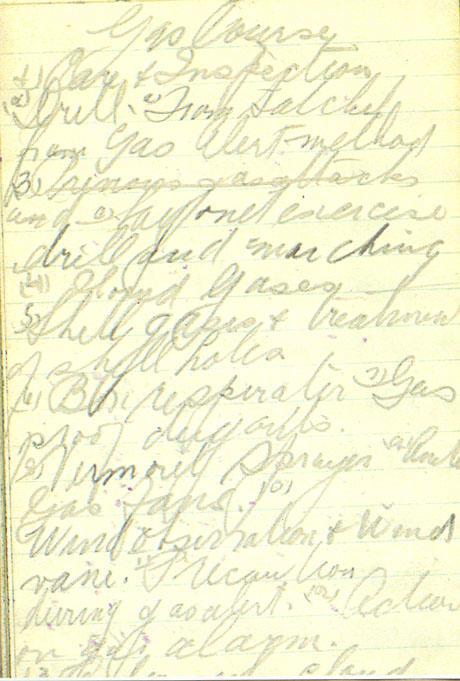 Gas Course
1) Care & Inspection
2) Drill. a) From Satchel
from Gas Alert method
3) gas attacks
and bayonet exercise
drill and marching
(4) Cloud Gases
5) Shell gases & treatment
of shell holes
6) Box respirator 7) Gas
proof dugouts.
8) Vermorel Sprays
Gas fans. 10)
Wind Observation & Wind
vane. 11) Precaution
during gas alert. (12) Action
on gas alarm.
cloud